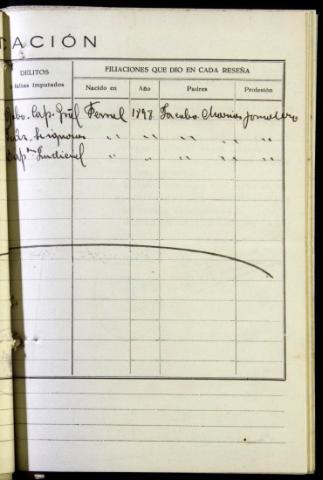 TACIÓN
DELITOS
faltas imputados
FILIACIONES QUE DIO EN CADA RESEÑA
Nacido en Año Padres Profesión
Cap. Gral Ferrol 1898 Jacobo. María Jornalero
" " " " "
Judicial " " " " "